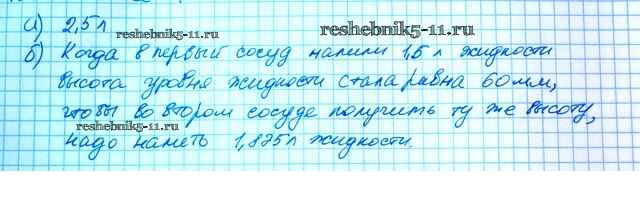 а) 2,5 л
reshebnik5-11.ru
reshebnik5-11.ru
б) Когда в первый сосуд налили 1,5 л жидкости
высота уровня жидкости стала равна 60мм,
чтобы во втором сосуде получить ту же высоту,
reshebnik5-11.ru
надо налить 1,875л жидкости.